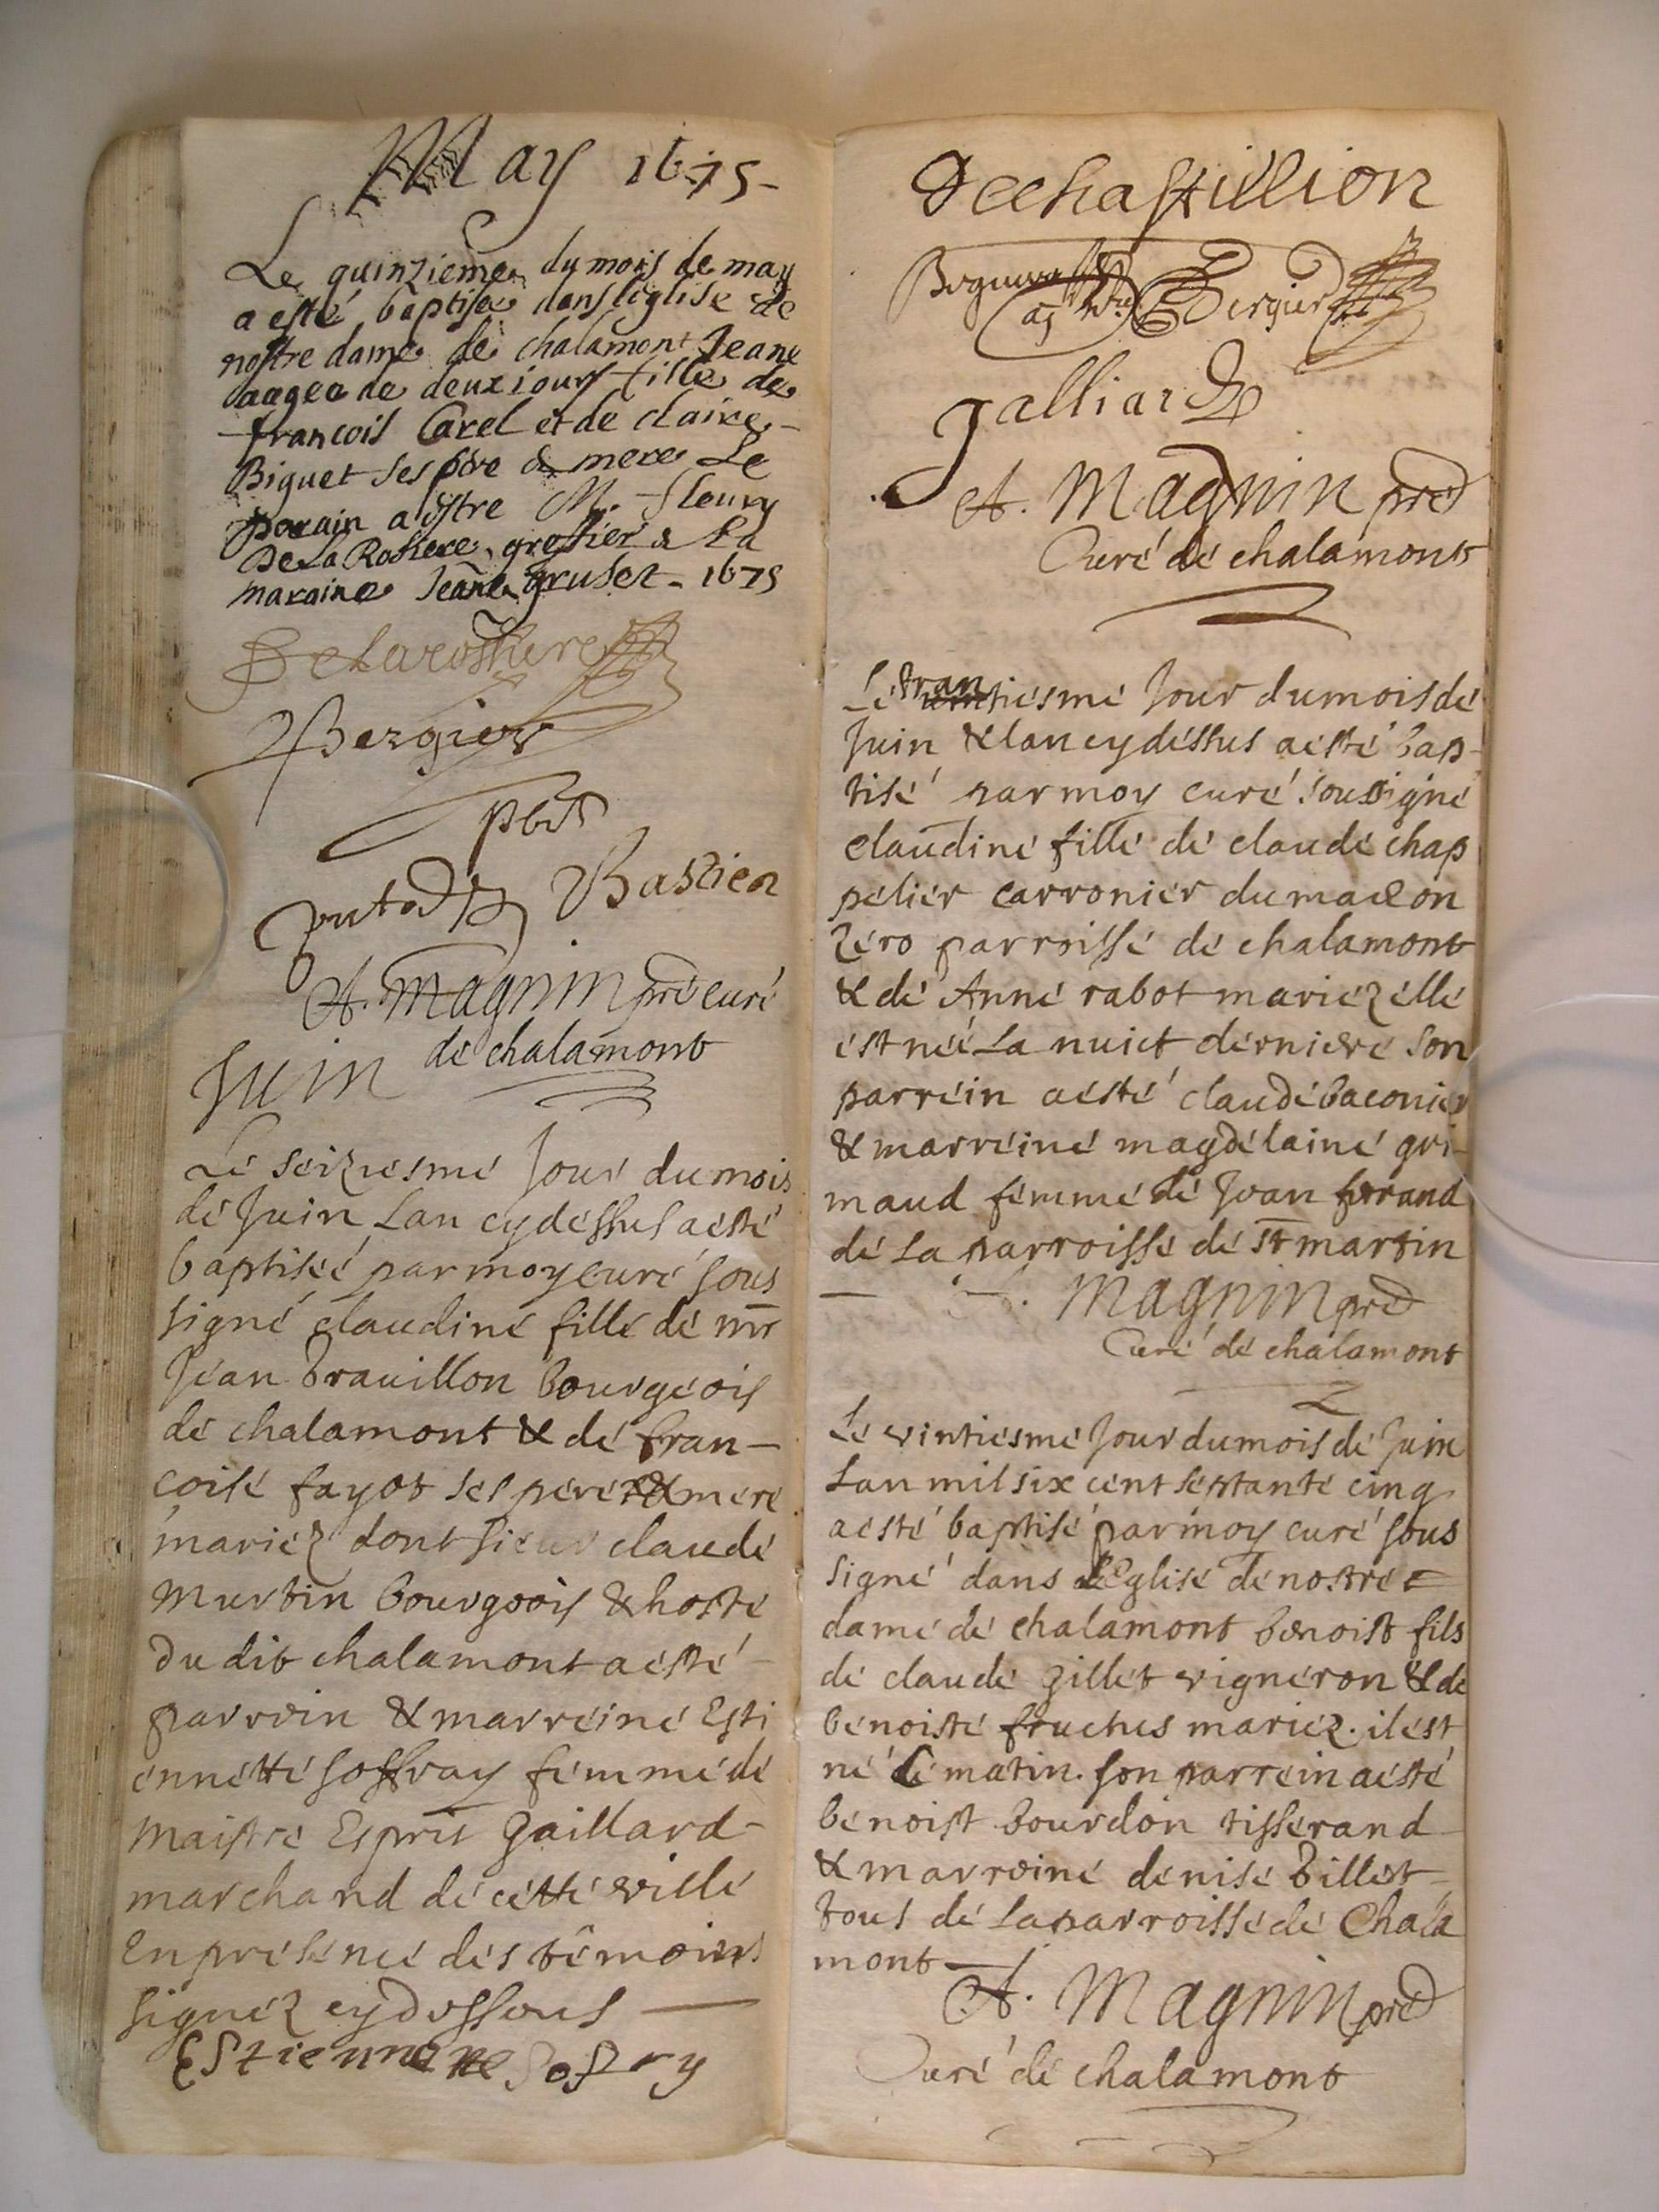 May 1675-
Le quinzieme du mois de may
a esté baptisee dans léglise de
nostre dame de chalamont Jeane
aagee de deux iours fille de
francois Carel et de claire
Biguet ses pere & mere Le
parain a estre M. fleury
De La Rosiere greffier & La
maraine Jeane gruset - 1675
DeLarosiere
Bergier
pbr
Bastien
A. Magnin pre curé
de chalamont
Juin
Le seiziesme Jour du mois
de Juin Lan cydessus a esté
baptiseé par moy curé sous
signé claudine fille de mr
Jean Trauillon bourgeois
de chalamont & de fran-
coise fayot ses pere & mere
mariez dont sieur claude
Murtin bourgeois & hoste
du dit chalamont a esté
parrein & marreine Esti
ennette soffray femme de
Maistre Esprit Gaillard-
marchand de cette ville
En presence des témoins
signez cydessous
Estiennene Sofry
Dechastillion
Bergier
galliard
A. Magnin pre
Curé de chalamont
Le tran tiesme Jour du mois de
Juin & lan cydessus a esté bap-
tisé par moy curé soussigné
claudine fille de claude chap
pelier carronier du ma&on
Zero parroisse de chalamont
& de Anne rabot mariez elle
est neé La nuict derniere son
parrein a esté claude baconier
& marreine magdelaine gri-
maud femme de Jean ferrand
de La parroisse de st martin
Magnin pre
Curé de chalamont
Le vintiesme Jour du mois de Juin
Lan mil six cent septante cinq
a esté baptisé par moy curé sous
signé dans LEglise de nostre =
dame de chalamont benoist fils
de claude Gillet vigneron & de
benoiste fruchus mariez. il est
né Ce matin. son parrein a esté
benoist bourdon tisserand
& marreine denise Billet
tous de La parroisse de Chala
mont
A. Magnin pre
Curé de chalamont